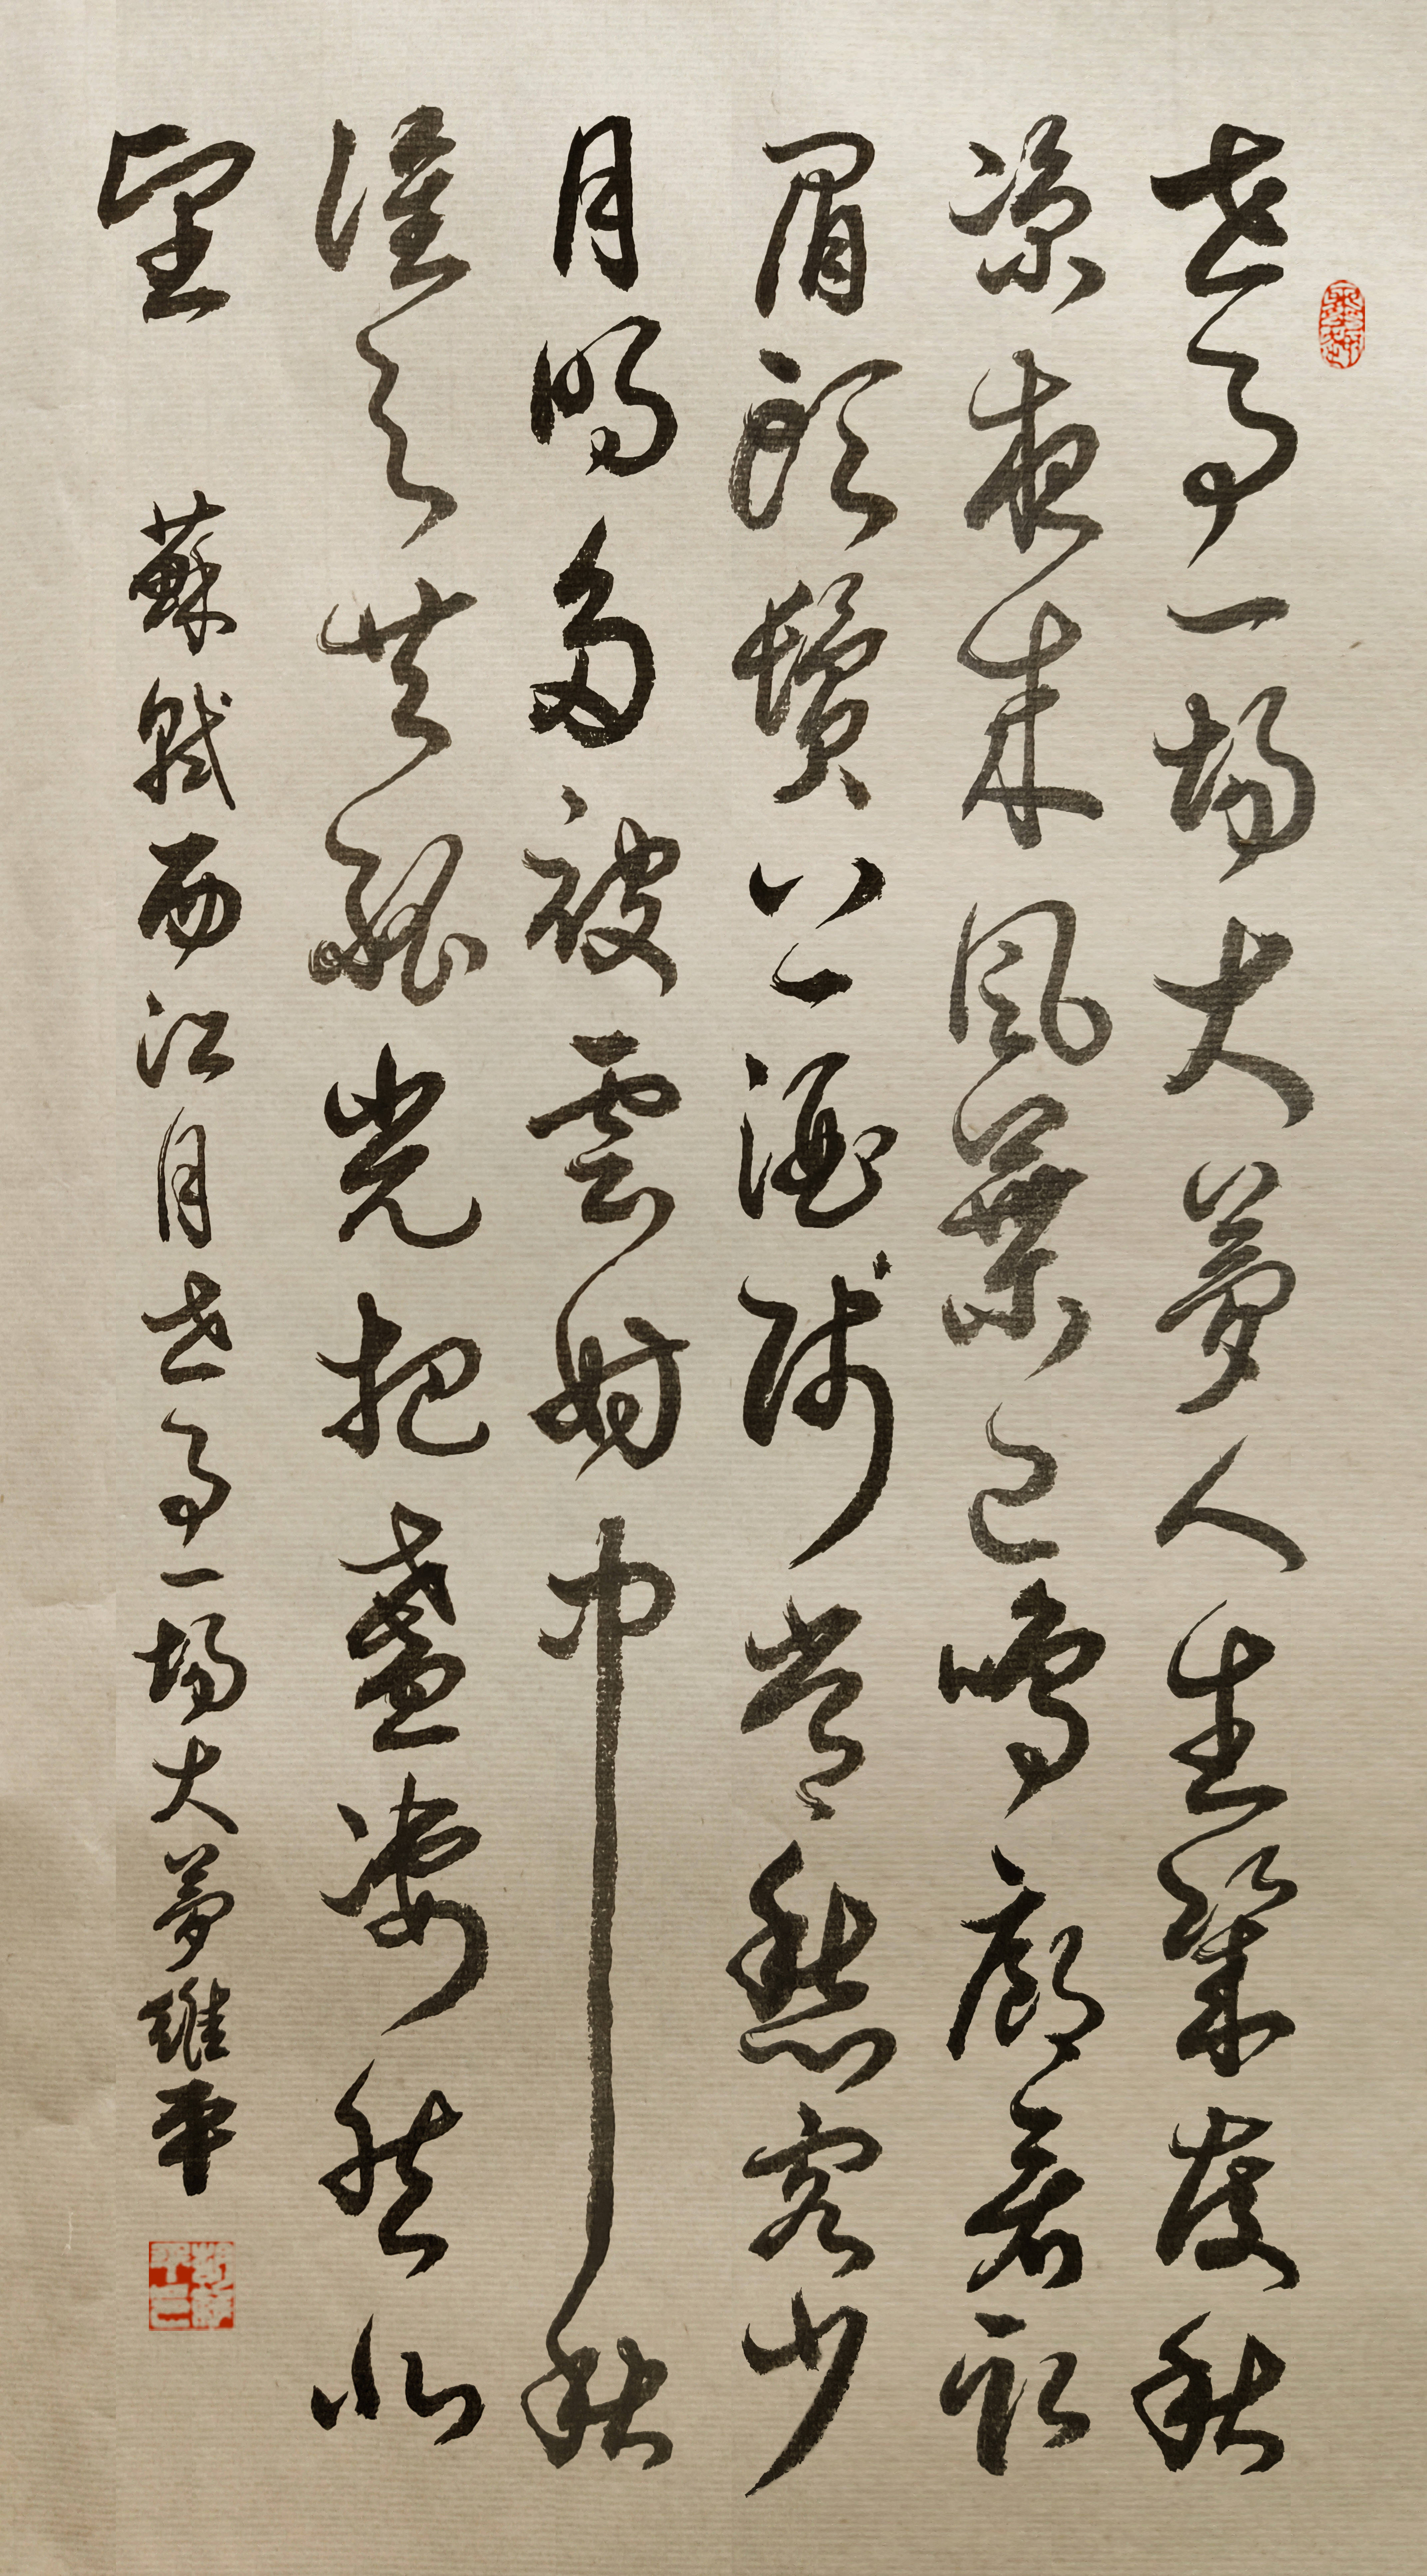 世事一場大夢人生幾度秋
涼夜來風葉已鳴廊看取
眉頭鬢上一酒賤常愁客少
月明多被雲妨中秋
誰與共孤光把盞淒然北
望
蘇軾西江月世事一場大夢維平